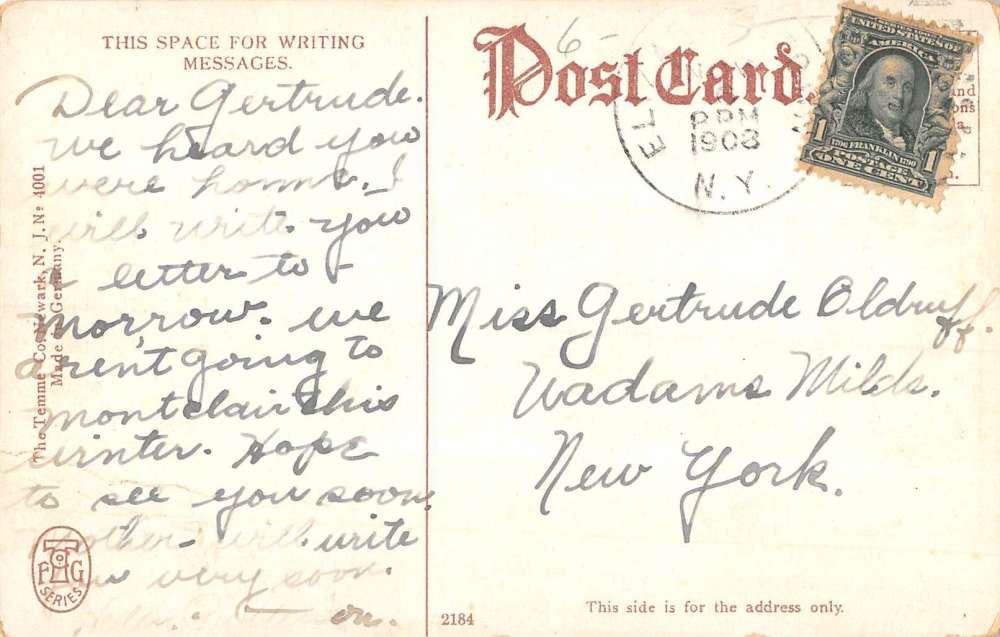 THIS SPACE FOR WRITING
MESSAGES.
Dear Gertrude.
we heard you
were home. I
will write you
a letter to
morrow. we
arent going to
montclair this
winter. Hope
to see you soon.
Mother will write
you very soon.
The Temme Co. Newark, N. J. No 4001
Made in Germany.
F T G
SERIES
Post Card
6-
EL
PM
1908
N. Y.
UNITED STATES OF
AMERICA
1706 FRANKLIN 1790
1 POSTAGE 1
ONE CENT
Miss Gertrude Oldruff.
Wadams Milds.
New York.
2184
This side is for the address only.